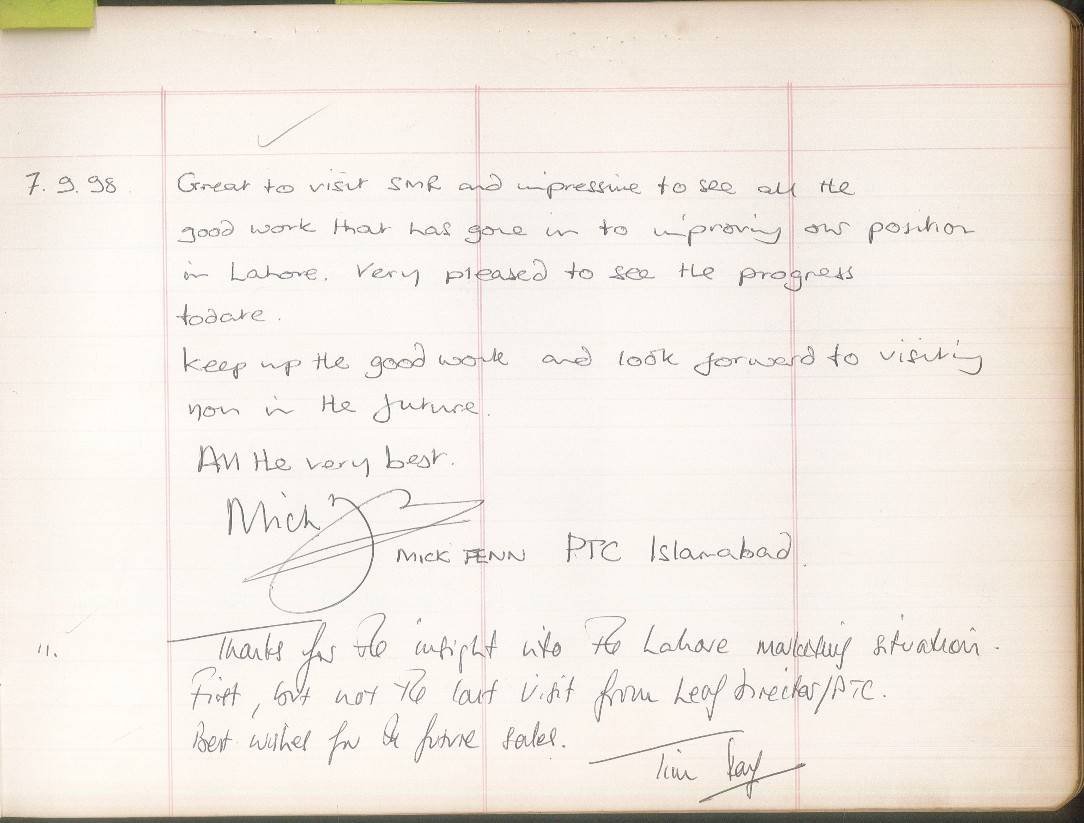 7.9.98 Great to visit SMR and impressive to see all the
good work that has gone in to improving our position
in Lahore. Very pleased to see the progress
todate.
Keep up the good work and look forward to visiting
you in the future.
All the very best.
Mick
MICK FENN PTC Islamabad.
11. Thanks for the insight into the Lahore marketing situation.
First, but not the last visit from Leaf Director/PTC.
Best wishes for the future sales.
Tim